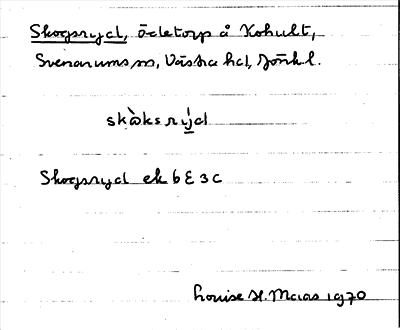 Skogsryd, ödetorp å Kohult,
Svenarums sn, Västra hd, Jönk l.
skòksrýd
Skogsryd ek 6E3c
Louise H. Maras 1970